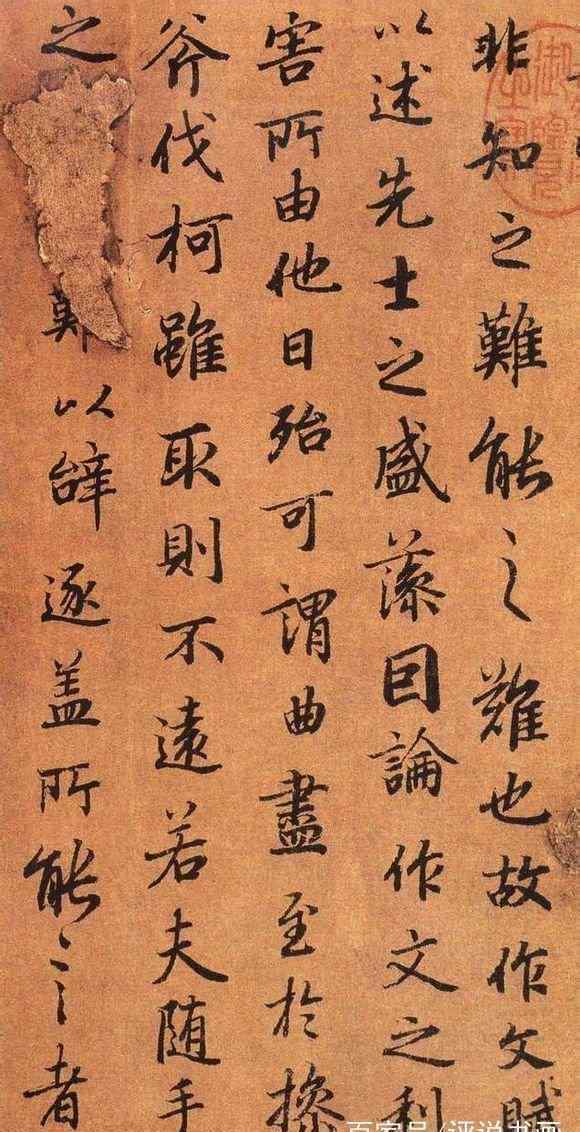 非知之難能之難也故作文賦
以述先士之盛藻因論作文之利
害所由他日殆可謂曲盡至於操
斧伐柯雖取則不遠若夫随手
之難以辤逐盖所能之者
百家号/评说书画